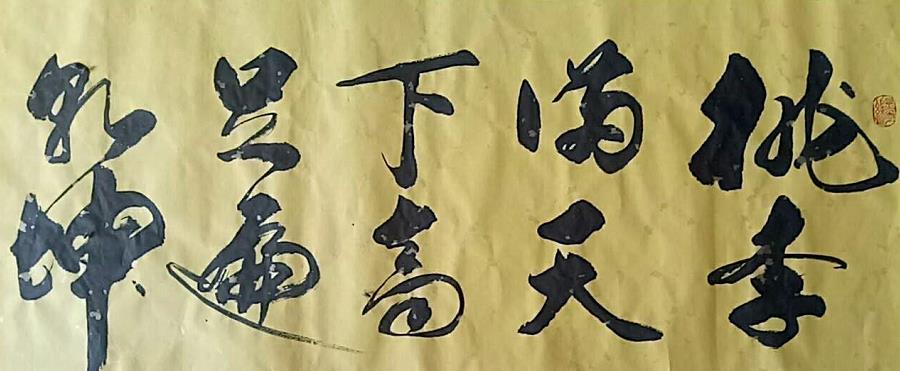 桃李
满天
下高
足遍
乾坤